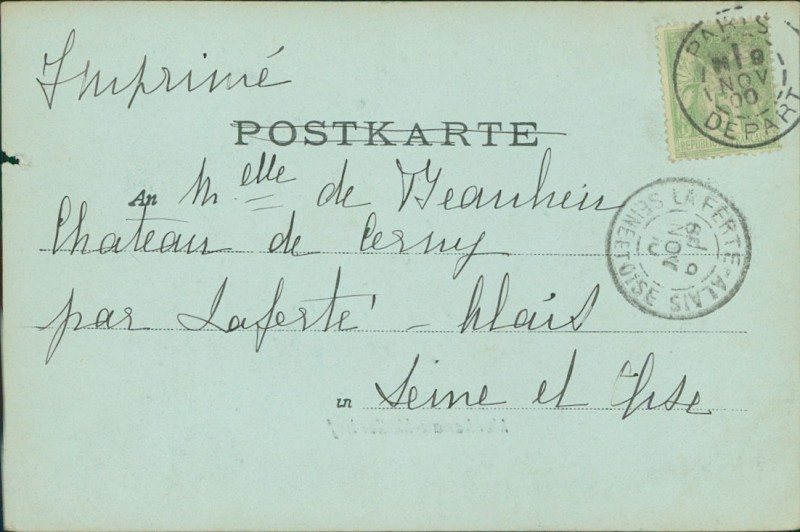 Imprimé
POSTKARTE
An Melle de
Chateau de Cerny
par Laferté - Alais
in Seine et Oise
PARIS DEPART
9 NOV 00
LA FERTE-ALAIS SEINE ET OISE
NOV